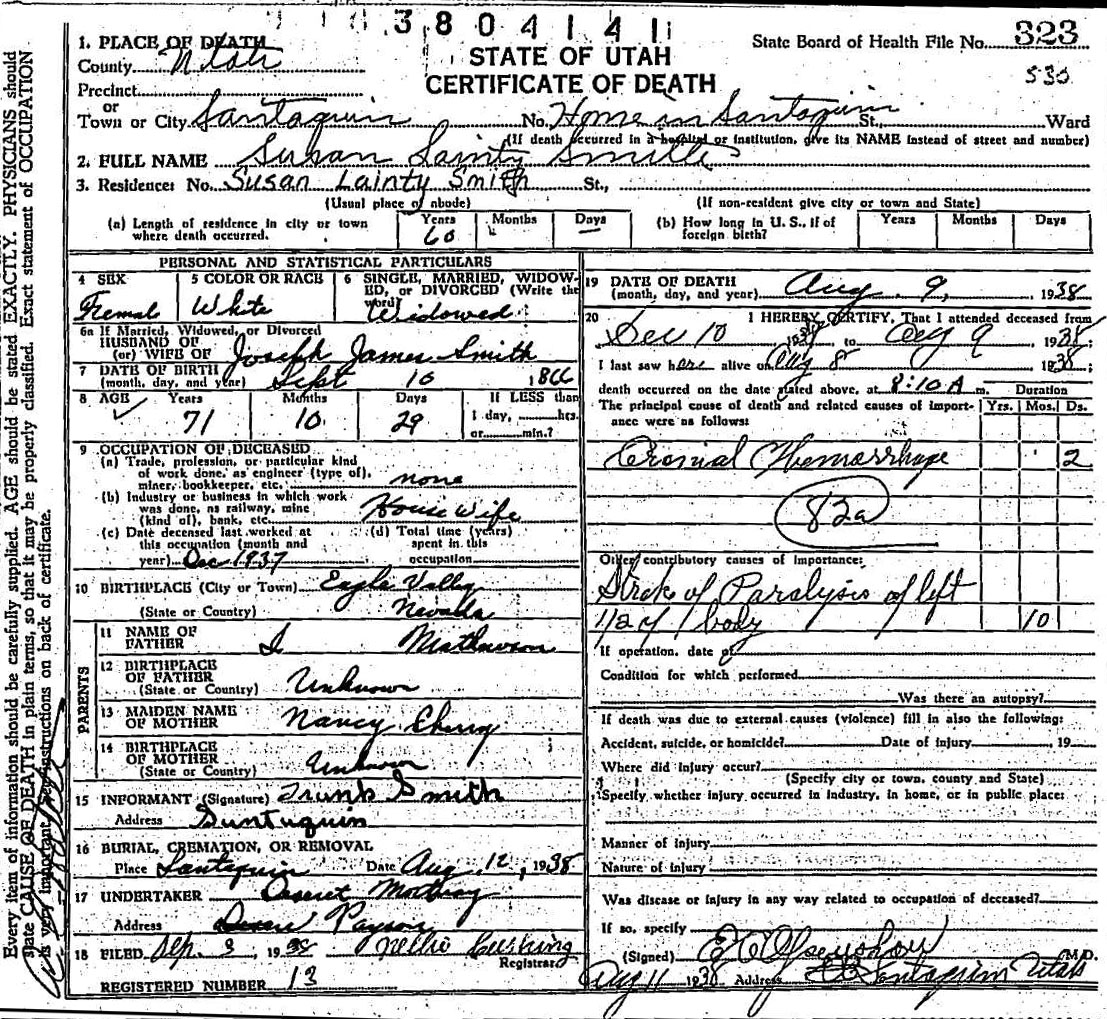 3804141
STATE OF UTAH
CERTIFICATE OF DEATH
State Board of Health File No. 323
530
1. PLACE OF DEATH
County Utah
Precinct
or
Town or City Santaquin No. Home in Santaquin St., Ward
(If death occurred in a hospital or institution, give its NAME instead of street and number)
2. FULL NAME Susan Lainty Smith
3. Residence: No. Susan Lainty Smith St.,
(Usual place of abode) (If non-resident give city or town and State)
(a) Length of residence in city or town where death occurred. Years 60 Months Days
(b) How long in U. S., if of foreign birth? Years Months Days
PERSONAL AND STATISTICAL PARTICULARS
4 SEX Femal
5 COLOR OR RACE White
6 SINGLE, MARRIED, WIDOWED, or DIVORCED (Write the word) Widowed
6a If Married, Widowed, or Divorced
HUSBAND OF
(or) WIFE OF Joseph James Smith
7 DATE OF BIRTH
(month, day, and year) Sept 10 1866
8 AGE Years 71 Months 10 Days 29
If LESS than
1 day, hrs.
or min.?
9 OCCUPATION OF DECEASED
(a) Trade, profession, or particular kind
of work done, as engineer (type of),
miner, bookkeeper, etc. none
(b) Industry or business in which work
was done, as railway, mine
(kind of), bank, etc. House Wife
(c) Date deceased last worked at
this occupation (month and
year) Dec 1937
(d) Total time (years)
spent in this
occupation
10 BIRTHPLACE (City or Town) Eagle Valley
(State or Country) Nevada
PARENTS
11 NAME OF
FATHER
12 BIRTHPLACE
OF FATHER
(State or Country) Unknown
13 MAIDEN NAME
OF MOTHER Nancy
14 BIRTHPLACE
OF MOTHER
(State or Country) Unknown
15 INFORMANT (Signature) Smith
Address Suntuquin
16 BURIAL, CREMATION, OR REMOVAL
Place Santaquin Date Aug 12, 1938
17 UNDERTAKER Deseret
Address Payson
18 FILED Sep. 3, 1938 Nellie Cushing
Registrar
REGISTERED NUMBER 13
19 DATE OF DEATH
(month, day, and year) Aug. 9, 1938
20 I HEREBY CERTIFY, That I attended deceased from
Dec 10 1937 to Aug 9 1938;
I last saw her alive on Aug 8 1938;
death occurred on the date stated above, at 8:10 A m.
Duration
The principal cause of death and related causes of importance were as follows: Yrs. Mos. Ds.
Cronial Hemorrhage 2
82a
Other contributory causes of importance:
Strok of Paralysis of left
1/2 of body 10
If operation, date of
Condition for which performed
Was there an autopsy?
If death was due to external causes (violence) fill in also the following:
Accident, suicide, or homicide? Date of injury , 19
Where did injury occur?
(Specify city or town, county and State)
Specify whether injury occurred in industry, in home, or in public place:
Manner of injury
Nature of injury
Was disease or injury in any way related to occupation of deceased?
If so, specify
(Signed) M.D.
Aug 11 1938 Address Santaquin Utah
Every item of information should be carefully supplied. AGE should be stated EXACTLY. PHYSICIANS should
state CAUSE OF DEATH in plain terms, so that it may be properly classified. Exact statement of OCCUPATION
is very important. See instructions on back of certificate.